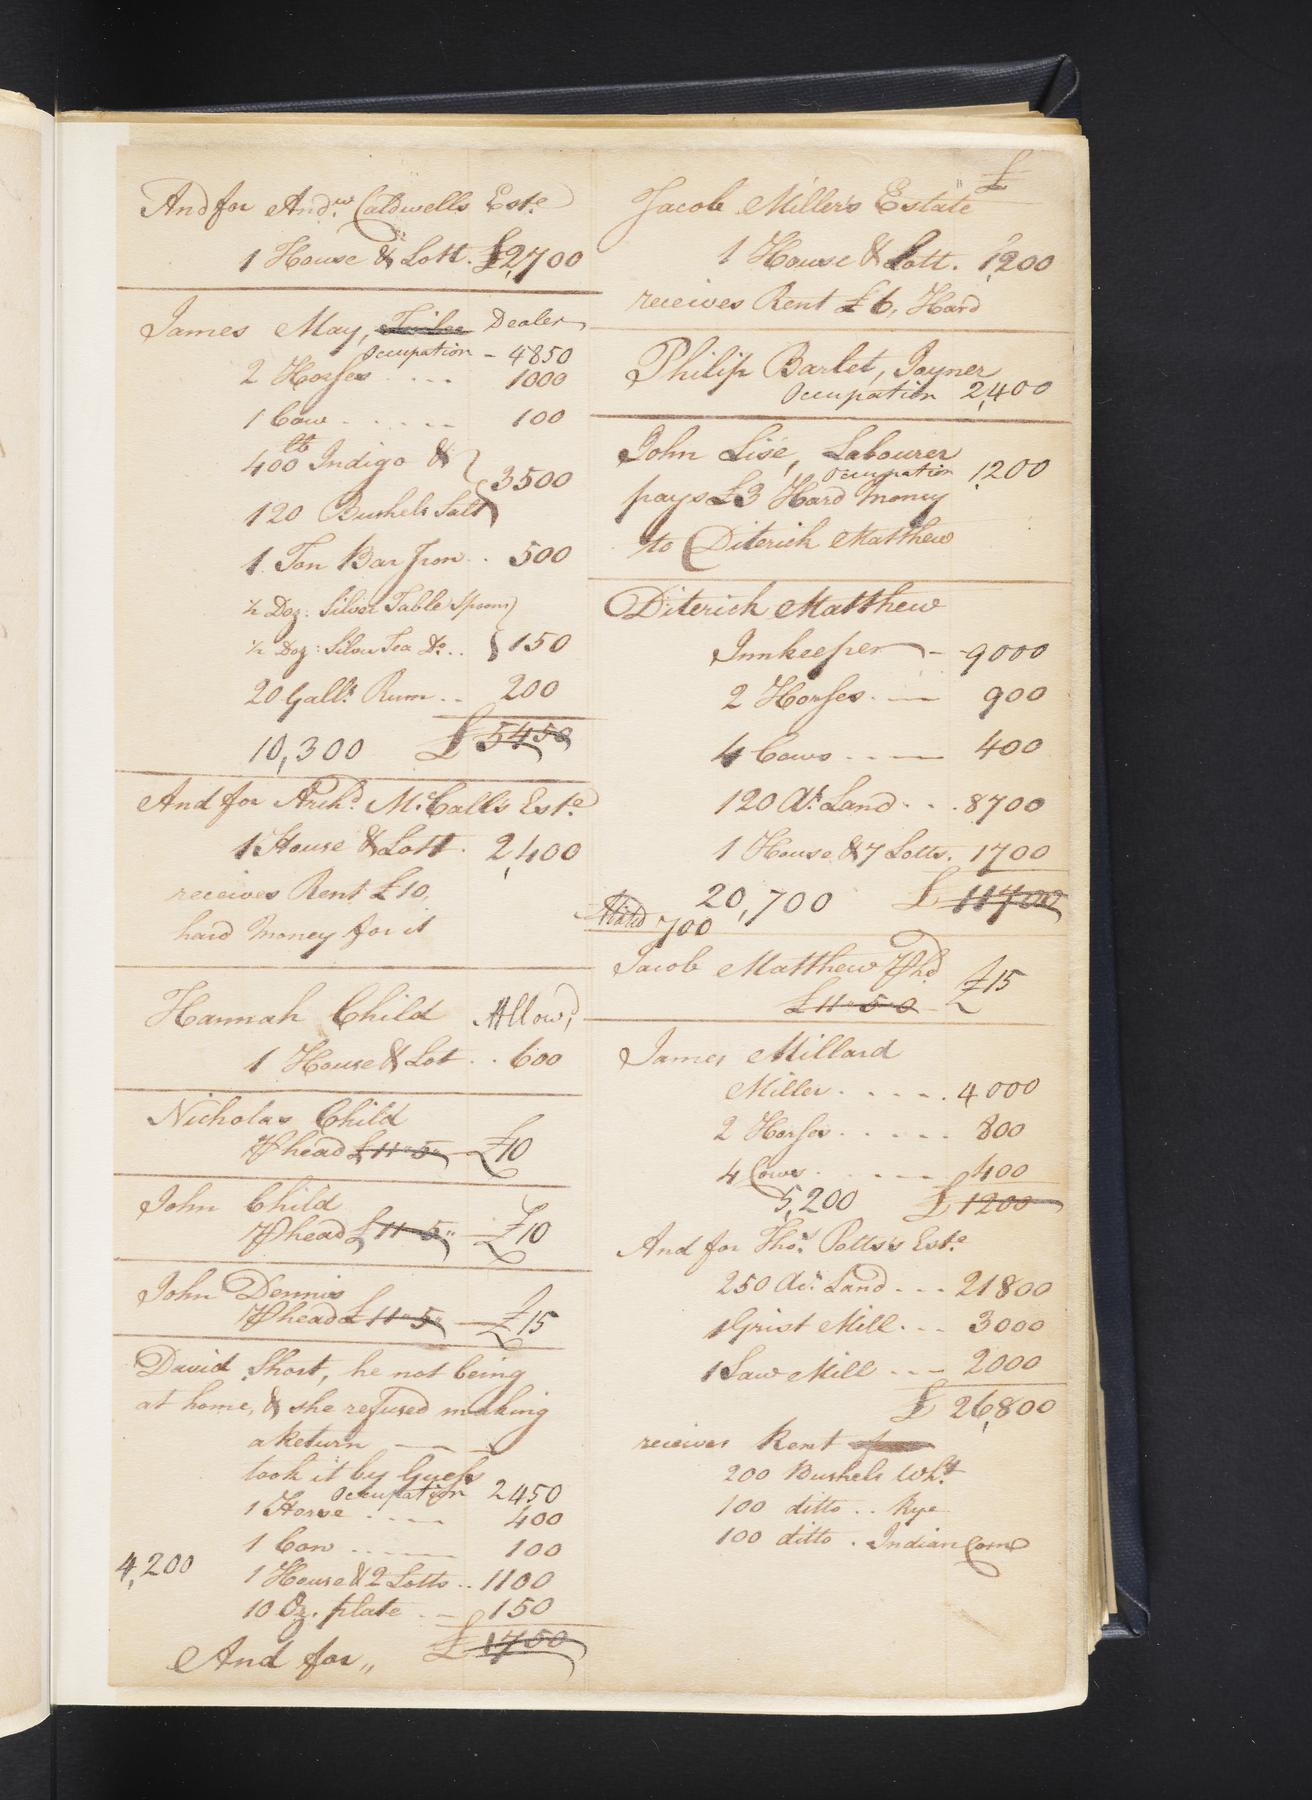 And for Andw. Caldwells Este.
1 House & Lott. £2,700
James May, Dealer
Occupation - 4850
2 Horses .... 1000
1 Cow ...... 100
400 lb Indigo & } 3500
120 Bushels Salt
1 Ton Bar Iron .. 500
½ Doz: Silver Table Spoons }
½ Doz: Silver Tea Do... } 150
20 Galls. Rum .. 200
10,300 £ 5450
And for Archd. McCall's Este.
1 House & Lott. 2,400
receives Rent £10,
hard Money for it
Hannah Child Allowd,
1 House & Lot .. 600
Nicholas Child
⅌ head £11"5" — £10
John Child
⅌ head £11"5" — £10
John Dennis
⅌ head £11"5" — £15
David Short, he not being
at home, & she refused making
a Return — — —
took it by Guess
Occupation 2450
1 Horse .... 400
1 Cow ..... 100
4,200 1 House & 2 Lotts .. 1100
10 Oz. plate .. 150
£ 1750
And for,,
£
Jacob Miller's Estate
1 House & Lott. 1,200
receives Rent £6, Hard
Philip Barlet, Joyner
Occupation 2,400
John Lise, Labourer
Occupation 1,200
pays £3 Hard Money
to Diterich Matthew
Diterich Matthew
Innkeeper - 9000
2 Horses. — 900
4 Cows ... — 400
120 As. Land .. 8700
1 House & 7 Lotts. 1700
20,700 £ 11700
700
Jacob Matthew ⅌ hd £15
£11"5"0
James Millard
Miller ..... 4000
2 Horses ..... 800
4 Cows ..... 400
5,200 £ 1200
And for Thos. Potts's Este.
250 As. Land ... 21800
1 Grist Mill ... 3000
1 Saw Mill ... 2000
£ 26,800
receives Rent
200 Bushels Wht.
100 ditto .. Rye
100 ditto . Indian Corn